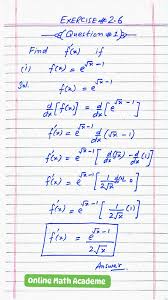 EXERCISE # 2.6
Question # 1
Find f'(x) if
(i) f(x) = e^(√x - 1)
Sol.
f(x) = e^(√x - 1)
d/dx [f(x)] = d/dx [e^(√x - 1)]
f'(x) = e^(√x - 1) d/dx (√x - 1)
f'(x) = e^(√x - 1) [d/dx (√x) - d/dx (1)]
f'(x) = e^(√x - 1) [1/(2√x)
f'(x) = e^(√x - 1) [1/(2√x) (1)]
f'(x) = e^(√x - 1)/(2√x)
Answer
Online Math Academe